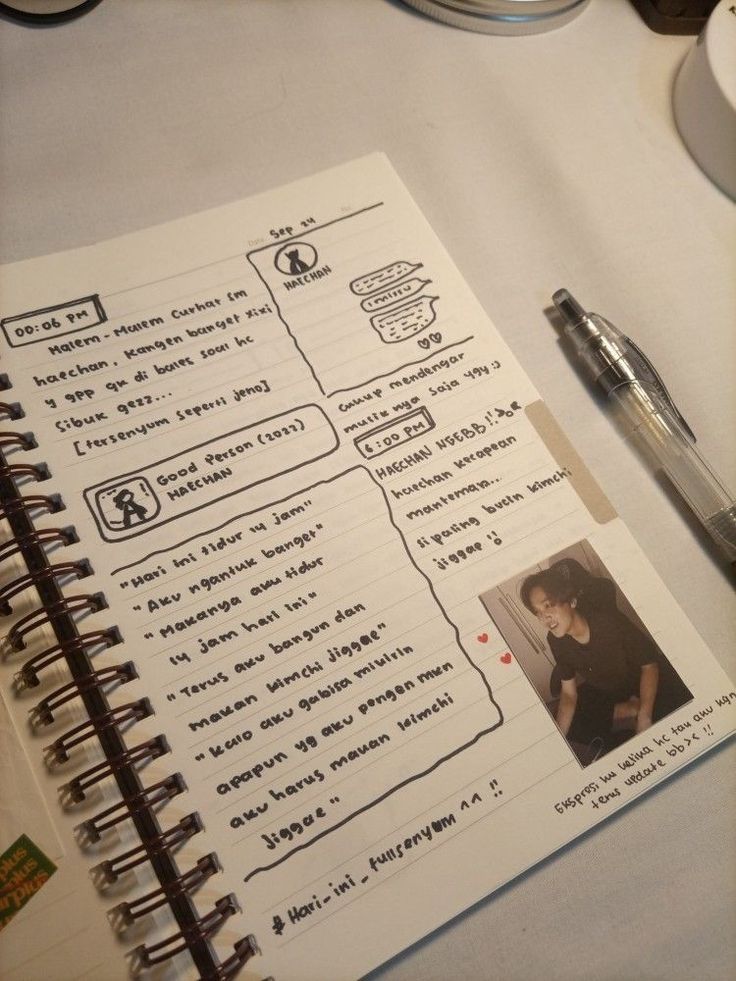 Date
Sep 24
No.
00:06 PM
Malem-Malem curhat sm
haechan, kangen banget xixi
y gpp gk di bales soal hc
sibuk gezz...
[tersenyum seperti jeno]
Good Person (2022)
HAECHAN
"Hari ini tidur 14 jam"
"Aku ngantuk banget"
"Makanya aku tidur
14 jam hari ini"
"Terus aku bangun dan
makan kimchi jiggae"
"Kalo aku gabisa mikirin
apapun yg aku pengen mkn
aku harus makan kimchi
jiggae"
#Hari_ini_fullsenyum ^^ !!
HAECHAN
I miss u
cukup mendengar
musiknya saja ygy :)
6:00 PM
HAECHAN NGEBB !!
haechan kecapean
manteman...
si paling bucin kimchi
jiggae !!
Ekspresi ku ketika hc tau aku kgn
terus update bb >< !!
plus
plus